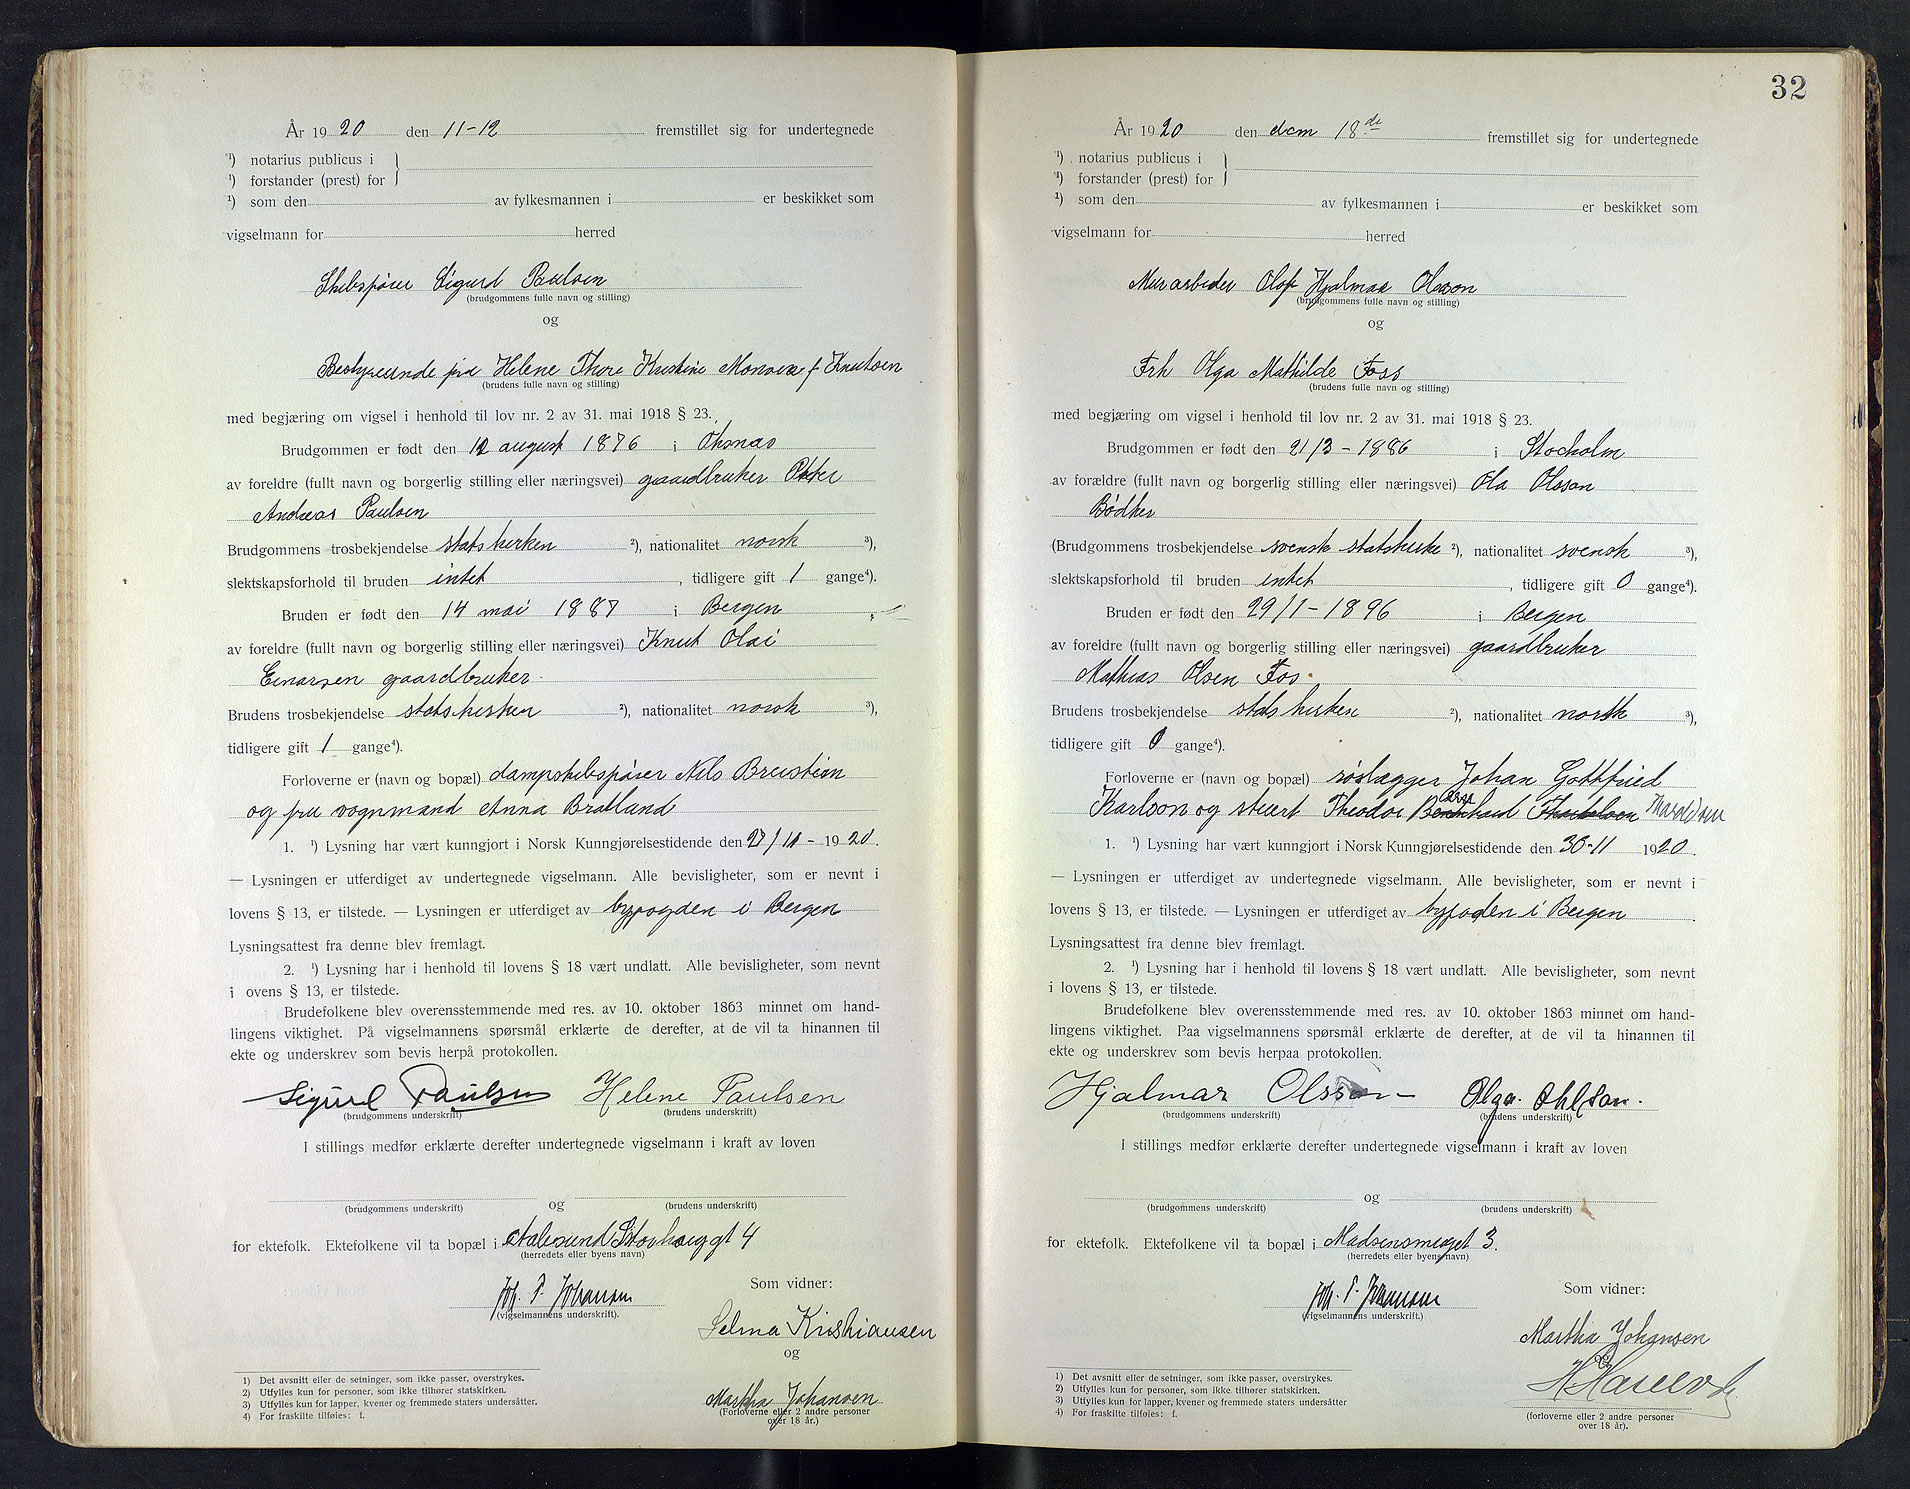 År 1920 den 11-12 fremstillet sig for undertegnede
¹) notarius publicus i
¹) forstander (prest) for
¹) som den av fylkesmannen i er beskikket som
vigselmann for herred
Skibsfører Sigurd Paulsen
(brudgommens fulle navn og stilling)
og
Bestyrerinde fru Helene Thore Kristine Monsen f Knutsen
(brudens fulle navn og stilling)
med begjæring om vigsel i henhold til lov nr. 2 av 31. mai 1918 § 23.
Brudgommen er født den 12 august 1876 i Øksnas
av foreldre (fullt navn og borgerlig stilling eller næringsvei) gaardbruker Peter
Andreas Paulsen
Brudgommens trosbekjendelse statskirken ²), nationalitet norsk ³),
slektskapsforhold til bruden intet , tidligere gift 1 gange⁴).
Bruden er født den 14 mai 1887 i Bergen ,
av foreldre (fullt navn og borgerlig stilling eller næringsvei) Knut Olai
Einarsen gaardbruker.
Brudens trosbekjendelse statskirken ²), nationalitet norsk ³),
tidligere gift 1 gange⁴).
Forloverne er (navn og bopæl) dampskibsfører Nils Breistein
og fru vognmand Anna Bratland
1. ¹) Lysning har vært kunngjort i Norsk Kunngjørelsestidende den 27/11 - 1920.
— Lysningen er utferdiget av undertegnede vigselmann. Alle bevisligheter, som er nevnt i
lovens § 13, er tilstede. — Lysningen er utferdiget av byfogden i Bergen
Lysningsattest fra denne blev fremlagt.
2. ¹) Lysning har i henhold til lovens § 18 vært undlatt. Alle bevisligheter, som nevnt
i ovens § 13, er tilstede.
Brudefolkene blev overensstemmende med res. av 10. oktober 1863 minnet om hand-
lingens viktighet. På vigselmannens spørsmål erklærte de derefter, at de vil ta hinannen til
ekte og underskrev som bevis herpå protokollen.
Sigurd Paulsen Helene Paulsen
(brudgommens underskrift) (brudens underskrift)
I stillings medfør erklærte derefter undertegnede vigselmann i kraft av loven
og
(brudgommens underskrift) (brudens underskrift)
for ektefolk. Ektefolkene vil ta bopæl i Aalesund Storhauggt 4
(herredets eller byens navn)
Joh. P. Johansen
(vigselmannens underskrift).
Som vidner:
Selma Kristiansen
og
Martha Johansen
(Forloverne eller 2 andre personer
over 18 år.)
1) Det avsnitt eller de setninger, som ikke passer, overstrykes.
2) Utfylles kun for personer, som ikke tilhører statskirken.
3) Utfylles kun for lapper, kvener og fremmede staters undersåtter.
4) For fraskilte tilføies: f.
32
År 1920 den dcm 18de fremstillet sig for undertegnede
¹) notarius publicus i
¹) forstander (prest) for
¹) som den av fylkesmannen i er beskikket som
vigselmann for herred
Murarbeider Olof Hjalmar Olsson
(brudgommens fulle navn og stilling)
og
Frk Olga Mathilde Foss
(brudens fulle navn og stilling)
med begjæring om vigsel i henhold til lov nr. 2 av 31. mai 1918 § 23.
Brudgommen er født den 21/3 - 1886 i Stocholm
av forældre (fullt navn og borgerlig stilling eller næringsvei) Ola Olsson
Bødker
(Brudgommens trosbekjendelse svensk statskirke ²), nationalitet svensk ³),
slektskapsforhold til bruden intet , tidligere gift 0 gange⁴).
Bruden er født den 29/1 - 1896 i Bergen
av foreldre (fullt navn og borgerlig stilling eller næringsvei) gaardbruker
Mathias Olsen Fos.
Brudens trosbekjendelse statskirken ²), nationalitet norsk ³),
tidligere gift 0 gange⁴).
Forloverne er (navn og bopæl) rørlægger Johan Gottfried
Karlson og stuert Theodor
1. ¹) Lysning har vært kunngjort i Norsk Kunngjørelsestidende den 30-11 1920.
— Lysningen er utferdiget av undertegnede vigselmann. Alle bevisligheter, som er nevnt i
lovens § 13, er tilstede. — Lysningen er utferdiget av byfoden i Bergen .
Lysningsattest fra denne blev fremlagt.
2. ¹) Lysning har i henhold til lovens § 18 vært undlatt. Alle bevisligheter, som nevnt
i lovens § 13, er tilstede.
Brudefolkene blev overensstemmende med res. av 10. oktober 1863 minnet om hand-
lingens viktighet. Paa vigselmannens spørsmål erklærte de derefter, at de vil ta hinannen til
ekte og underskrev som bevis herpaa protokollen.
Hjalmar Olsson Olga Ohlson.
(brudgommens underskrift) (brudens underskrift)
I stillings medfør erklærte derefter undertegnede vigselmann i kraft av loven
og
(brudgommens underskrift) (brudens underskrift)
for ektefolk. Ektefolkene vil ta bopæl i Madsensmuget 3.
(herredets eller byens navn)
Joh. P. Johansen
(vigselmannens underskrift.)
Som vidner:
Martha Johansen
og
(forloverne eller 2 andre personer
over 18 år).
1) Det avsnitt eller de setninger, som ikke passer, overstrykes.
2) Utfylles kun for personer, som ikke tilhører statskirken.
3) Utfylles kun for lapper, kvener og fremmede staters undersåtter
4) For fraskilte tilføies: f.